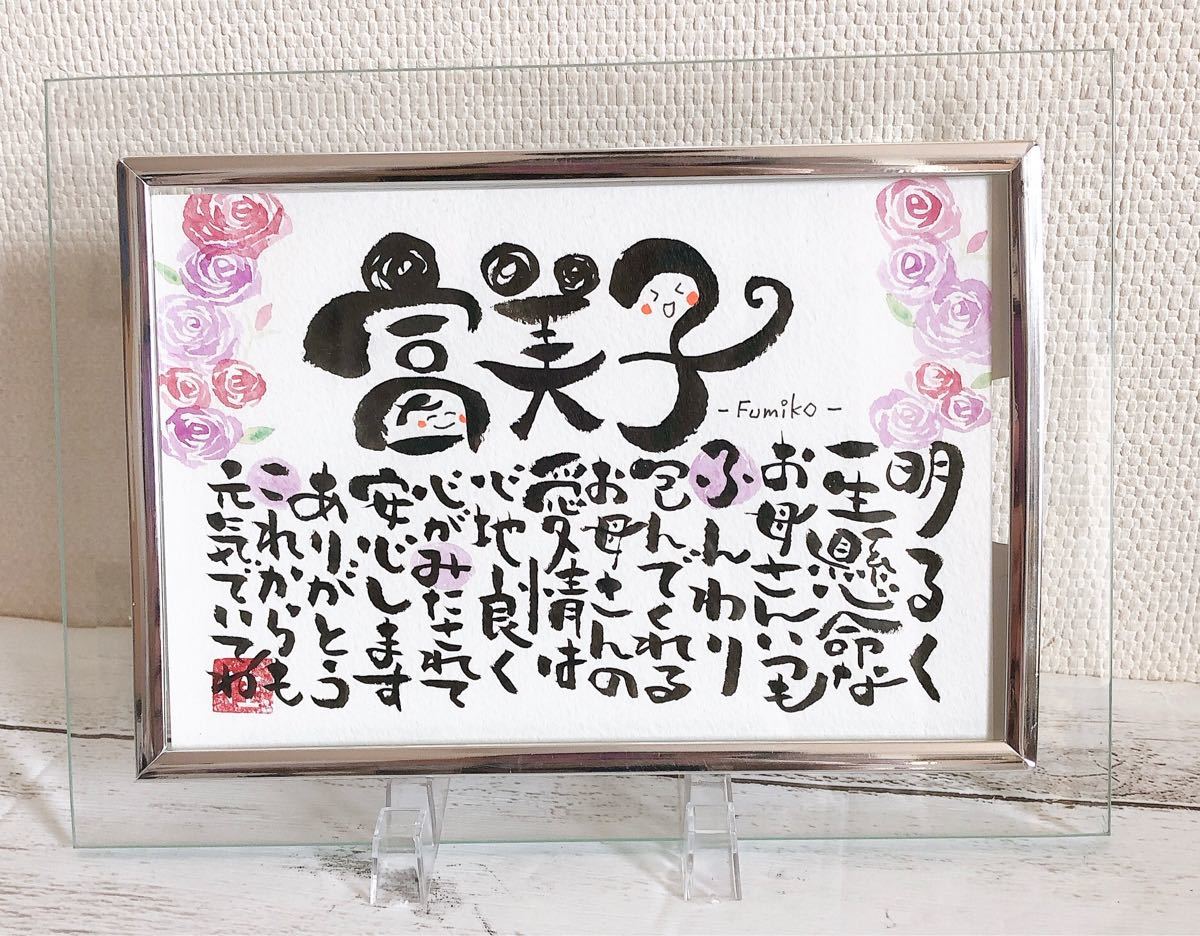 富美子
-Fumiko-
明るく
一生懸命な
お母さんいつも
ふんわり
包んでくれる
お母さんの
愛情は
心地良く
心がみたされて
安心します
ありがとう
これからも
元気でいてね